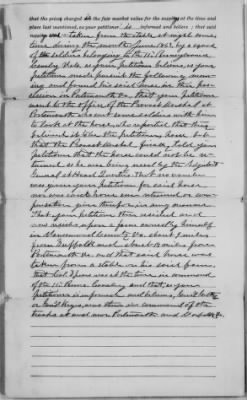 that the prices charged is the fair market value for the supplies at the time and
place last mentioned, as your petitioner is informed and believes; that said
was taken from the stable at night some
time during the month of June 1863 by a squad
of the soldiers belonging to the 11th Pennsylvania
Cavalry Vols. as your petitioner believes, as your
petitioner made pursuit the following morn-
ing and found his said horse in their pos-
session in Portsmouth Va., that your petitioner
went to the office of the Provost Marshal at
Portsmouth who sent some soldiers with him
to look at the horse, who reported that they
believed it was the petitioners horse but
that the Provost Marshal finally told your
petitioner that the horse could not be re-
turned as he was being used by the
at Head Quarters. That no voucher
was given your petitioner for said horse
nor was said horse ever returned or com-
pensation given therefor in any manner.
That your petitioner then resided and
now resides upon a farm owned by himself
in Nansemond County Va. about 9 miles
from Suffolk and about 9 miles from
Portsmouth Va. and that said horse was
taken from a stable on his said farm.
that Col. Spear was at the time in command
of the 11th Penn. Cavalry and that, as your
petitioner is informed and believes,
or was then in command of the
troops at and near Portsmouth and